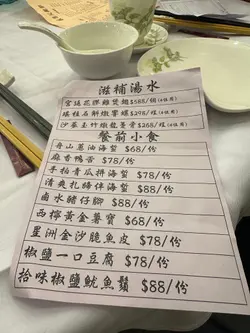 滋補湯水
宮廷花膠雞煲翅$588/鍋(4位用)
瑤柱石斛燉響螺$298/盅(4位用)
沙參玉竹燉龍薑骨$268/盅(4位用)
餐前小食
舟山蔥油海蜇 $68/份
麻香鴨舌 $78/份
手拍青瓜拼海蜇 $78/份
清爽札蹄伴海蜇 $88/份
鹵水豬仔腳 $88/份
西檸黃金薯寶 $68/份
星洲金沙脆魚皮 $78/份
椒鹽一口豆腐 $78/份
拾味椒鹽魷魚鬚 $88/份